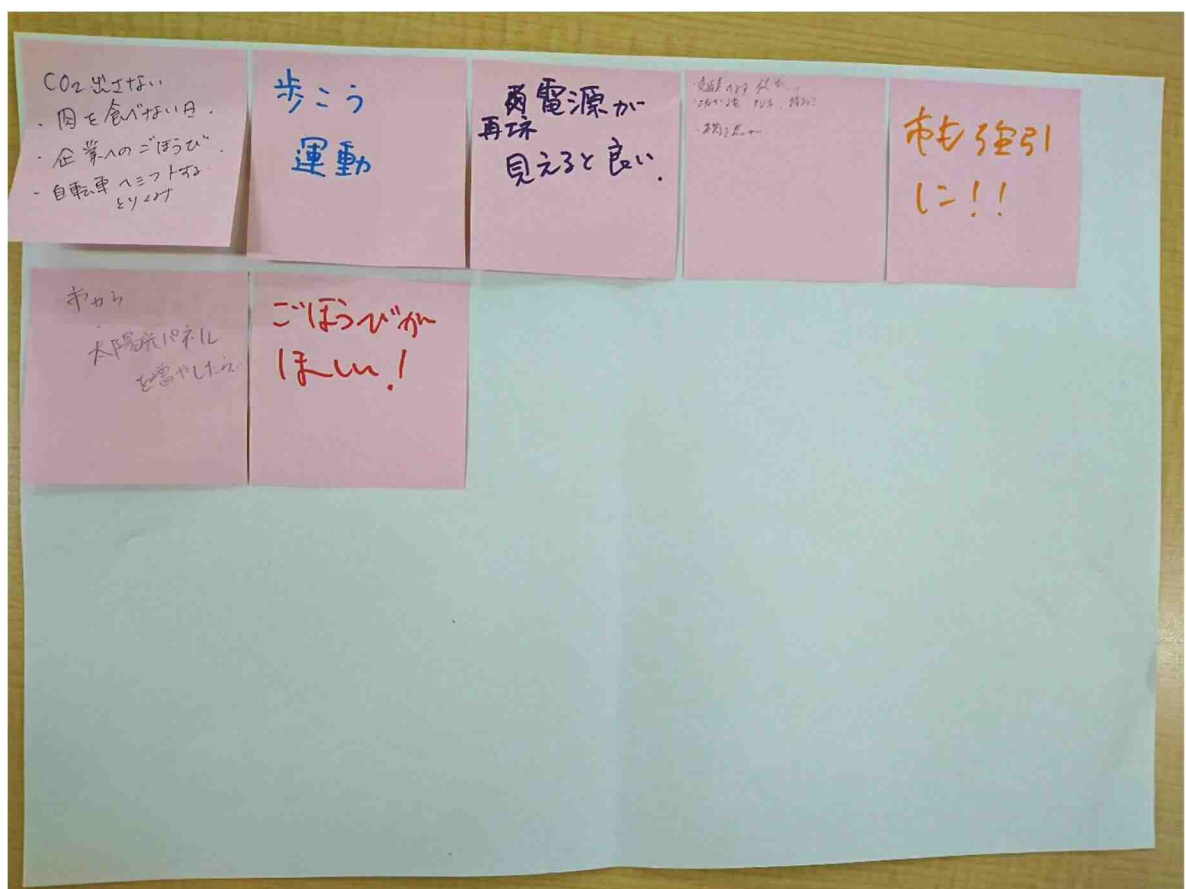 CO2 出さない
・肉を食べない日.
・企業へのごほうび.
・自転車へシフトする
とりくみ
歩こう
運動
電源が
再エネ
見えると良い.
市も強引
に!!
市から
太陽光パネル
を増やしたら
ごほうびが
ほしい!